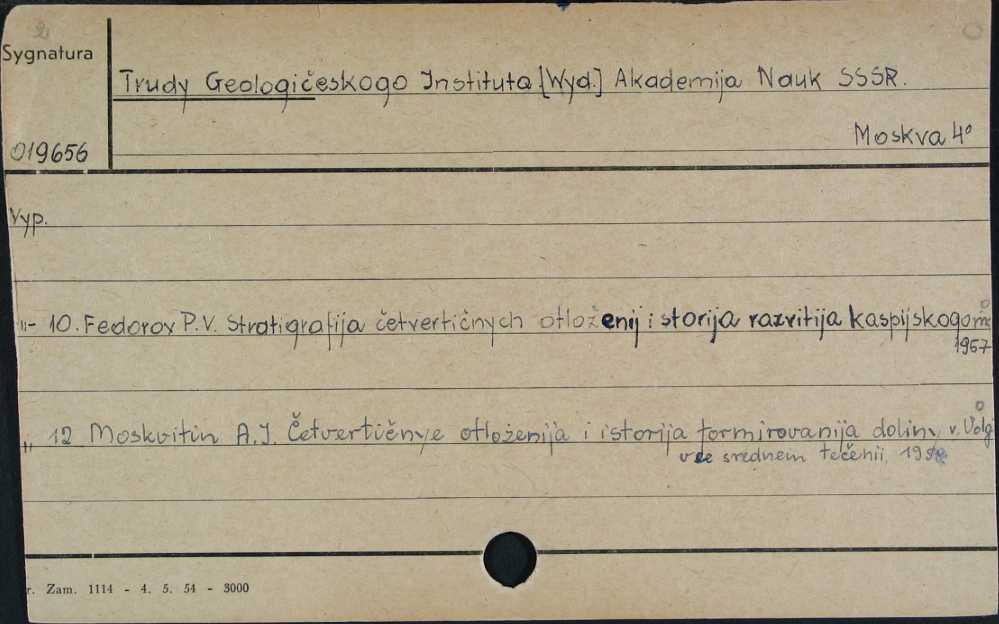 Sygnatura
Trudy Geologičeskogo Instituta [Wyd.] Akademija Nauk SSSR.
Moskva 4°
019656
Vyp.
"- 10. Fedorov P.V. Stratigrafija četvertičnych otloženij i storija razvitija kaspijskogo
1957
" 12 Moskvitin A.I. Četvertičnye otloženija i istorija formirovanija doliny v. Volg
v ee srednem tečenii, 1958
r. Zam. 1114 - 4. 5. 54 - 3000